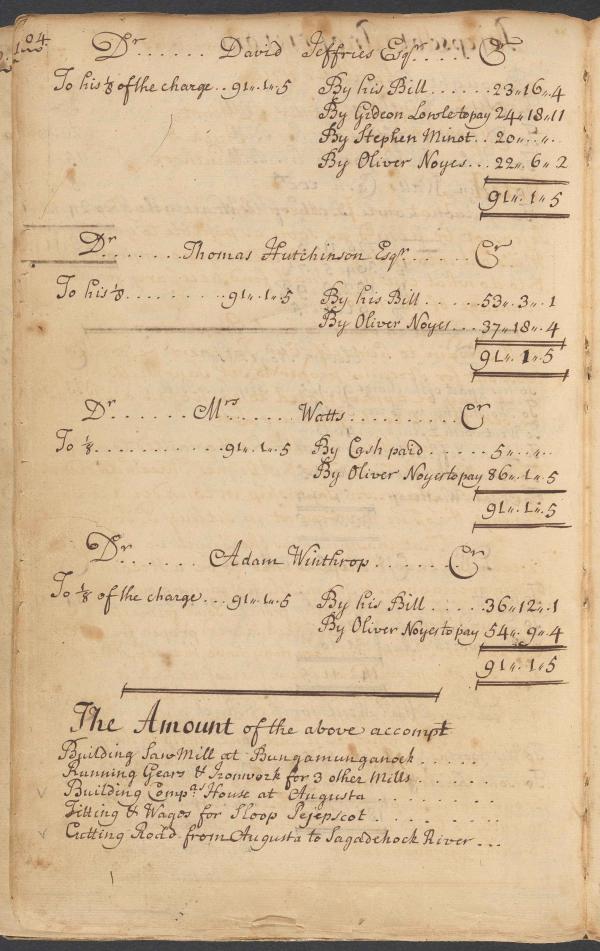 104.
Dr ...... David Jeffries Esqr ..... Cr
To his ⅛ of the charge .. 91 „ 1 „ 5 By his Bill ...... 23 „ 16 „ 4
By Gideon Lowle to pay 24 „ 18 „ 11
By Stephen Minot .. 20 „ . „ .
By Oliver Noyes ... 22 „ 6 „ 2
91 „ 1 „ 5
Dr ....... Thomas Hutchinson Esqr ..... Cr
To his ⅛ ......... 91 „ 1 „ 5 By his Bill ..... 53 „ 3 „ 1
By Oliver Noyes ... 37 „ 18 „ 4
91 „ 1 „ 5
Dr ...... Mrs ..... Watts .......... Cr
To ⅛ ........... 91 „ 1 „ 5 By Cash paid ...... 5 „ . „ .
By Oliver Noyes to pay 86 „ 1 „ 5
91 „ 1 „ 5
Dr ...... Adam Winthrop ....... Cr
To ⅛ of the charge ... 91 „ 1 „ 5 By his Bill ...... 36 „ 12 „ 1
By Oliver Noyes to pay 54 „ 9 „ 4
91 „ 1 „ 5
The Amount of the above accompt
Building Saw Mill at Bungamunganock .....
Running Gears & Ironwork for 3 other Mills ......
Building Compa. House at Augusta .........
Fitting & Wages for Sloop Pejepscot .........
Cutting Road from Augusta to Sagadehock River ...